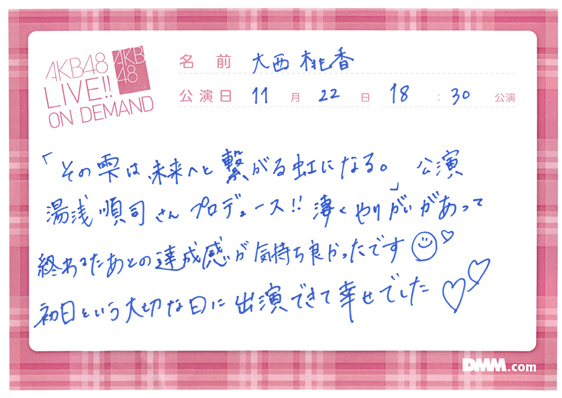 AKB48
LIVE!!
ON DEMAND
AKB
48
名前 大西桃香
公演日 11月22日18:30公演
「その雫は未来へと繋がる虹になる。」公演
湯浅順司さんプロデュース!! 凄くやりがいがあって
終わったあとの達成感が気持ち良かったです
初日という大切な日に出演できて幸せでした
DMM.com